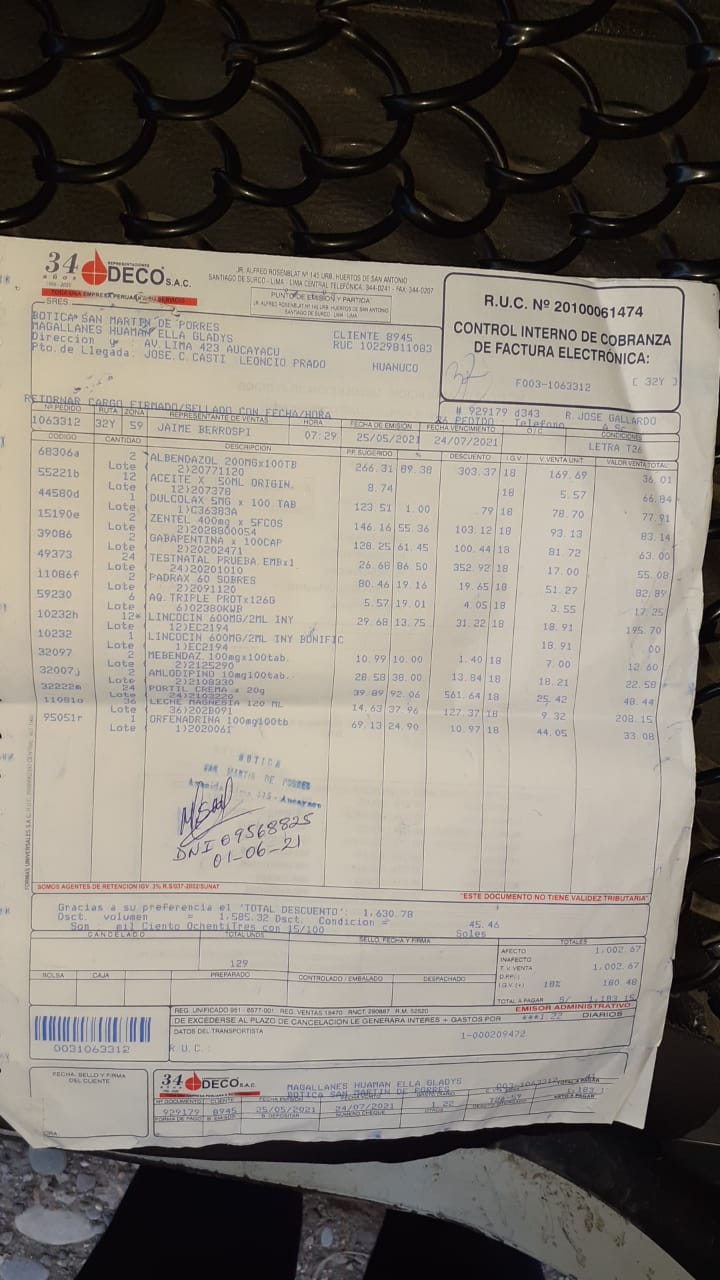 34 años
REPRESENTACIONES
DECO S.A.C.
TODA UNA EMPRESA PERUANA A SU SERVICIO
JR. ALFRED ROSENBLAT Nº 141 URB. HUERTOS DE SAN ANTONIO
SANTIAGO DE SURCO - LIMA - LIMA CENTRAL TELEFÓNICA: 344-0241 - FAX: 344-0207
PUNTO DE EMISIÓN Y PARTIDA
JR. ALFRED ROSENBLAT Nº 141 URB. HUERTOS DE SAN ANTONIO
SANTIAGO DE SURCO - LIMA - LIMA
R.U.C. Nº 20100061474
CONTROL INTERNO DE COBRANZA
DE FACTURA ELECTRÓNICA:
F003-1063312 [ 32Y ]
SRES
BOTICA SAN MARTIN DE PORRES
MAGALLANES HUAMAN ELLA GLADYS CLIENTE 8945
Direccion y : AV.LIMA 423 AUCAYACU RUC 10229811083
Pto.de Llegada: JOSE.C.CASTI LEONCIO PRADO HUANUCO
RETORNAR CARGO FIRMADO/SELLADO CON FECHA/HORA # 929179 d343 R.JOSE GALLARDO
Nº PEDIDO RUTA ZONA REPRESENTANTE DE VENTAS HORA FECHA DE EMISIÓN FECHA VENCIMIENTO PEDIDO Telefono O/C CONDICIONES
1063312 32Y 59 JAIME BERROSPI 07:29 25/05/2021 24/07/2021 LETRA T26
CÓDIGO CANTIDAD DESCRIPCIÓN P.P. SUGERIDO % DESCUENTO I.G.V V. VENTA UNIT. VALOR VENTA TOTAL
68306a 2 ALBENDAZOL 200MGx100TB 266.31 89.38 303.37 18 169.69 36.01
Lote ( 2)20771120
55221b 12 ACEITE X 50ML ORIGIN. 8.74 18 5.57 66.84
Lote ( 12)207378
44580d 1 DULCOLAX 5MG x 100 TAB 123.51 1.00 .79 18 78.70 77.91
Lote ( 1)C36383A
15190e 2 ZENTEL 400mg x 5FCOS 146.16 55.36 103.12 18 93.13 83.14
Lote ( 2)2028800054
39086 2 GABAPENTINA x 100CAP 128.25 61.45 100.44 18 81.72 63.00
Lote ( 2)20202471
49373 24 TESTNATAL PRUEBA.EMBx1 26.68 86.50 352.92 18 17.00 55.08
Lote ( 24)20201010
11086f 2 PADRAX 60 SOBRES 80.46 19.16 19.65 18 51.27 82.89
Lote ( 2)2091120
59230 6 AQ.TRIPLE PROTx126G 5.57 19.01 4.05 18 3.55 17.25
Lote ( 6)023B0KWB
10232h 12* LINCOCIN 600MG/2ML INY 29.68 13.75 31.22 18 18.91 195.70
Lote ( 12)EC2194
10232 1 LINCOCIN 600MG/2ML INY BONIFIC 18.91 .00
Lote ( 1)EC2194
32097 2 MEBENDAZ.100mgx100tab. 10.99 10.00 1.40 18 7.00 12.60
Lote ( 2)2125290
32007j 2 AMLODIPINO 10mg100tab. 28.58 38.00 13.84 18 18.21 22.58
Lote ( 2)2108330
32222m 24 PORTIL CREMA x 20g 39.89 92.06 561.64 18 25.42 48.44
Lote ( 24)2103220
11081o 36 LECHE MAGNESIA 120 ML 14.63 37.96 127.37 18 9.32 208.15
Lote ( 36)202B091
95051r 1 ORFENADRINA 100mg100tb 69.13 24.90 10.97 18 44.05 33.08
Lote ( 1)2020061
BOTICA
SAN MARTIN DE PORRES
Aucayacu
DNI 09568825
01-06-21
SOMOS AGENTES DE RETENCION IGV .3% R.S/037-2002/SUNAT
"ESTE DOCUMENTO NO TIENE VALIDEZ TRIBUTARIA"
Gracias a su preferencia el 'TOTAL DESCUENTO': 1,630.78
Dsct. volumen = 1,585.32 Dsct. Condicion = 45.46
Son mil Ciento OchentiTres con 15/100 Soles
CANCELADO TOTAL UNDS SELLO, FECHA Y FIRMA TOTALES
129
AFECTO 1,002.67
INAFECTO
T. V. VENTA 1,002.67
D.P.P. (-)
I.G.V. (+) 18% 180.48
TOTAL A PAGAR S/ 1,183.15
BOLSA CAJA PREPARADO CONTROLADO / EMBALADO DESPACHADO
EMISOR ADMINISTRATIVO
REG. UNIFICADO 951 - 6577-001 REG. VENTAS 18470 RNCT. 290887 R.M. 52520
DE EXCEDERSE AL PLAZO DE CANCELACION LE GENERARA INTERES + GASTOS POR ***1.22 DIARIOS
DATOS DEL TRANSPORTISTA 1-000209472
R.U.C.:
0031063312
FECHA, SELLO Y FIRMA
DEL CLIENTE
34 DECO S.A.C.
MAGALLANES HUAMAN ELLA GLADYS
BOTICA SAN MARTIN DE PORRES
003-1063312 TOTAL A PAGAR
Nº DOCUMENTO CLIENTE FECHA EMISIÓN GASTO DIARIO
929179 8945 25/05/2021 24/07/2021 1.22
FORMA DE PAGO B. EMISOR B. DEPOSITAR NUMERO CHEQUE